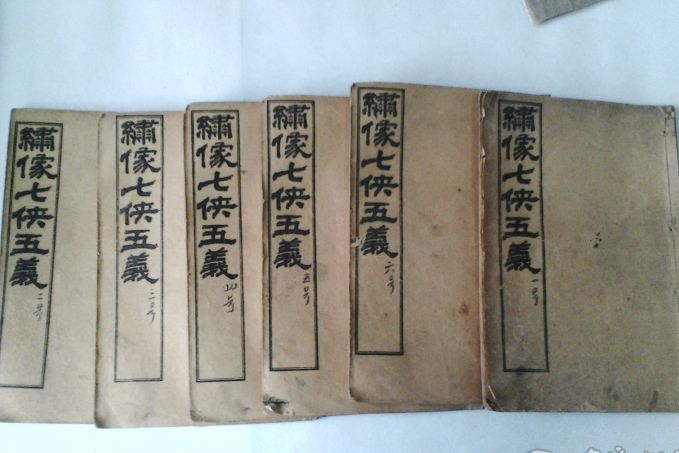 繡像七俠五義
二号
繡像七俠五義
三号
繡像七俠五義
四号
繡像七俠五義
五号
繡像七俠五義
六号
繡像七俠五義
一号